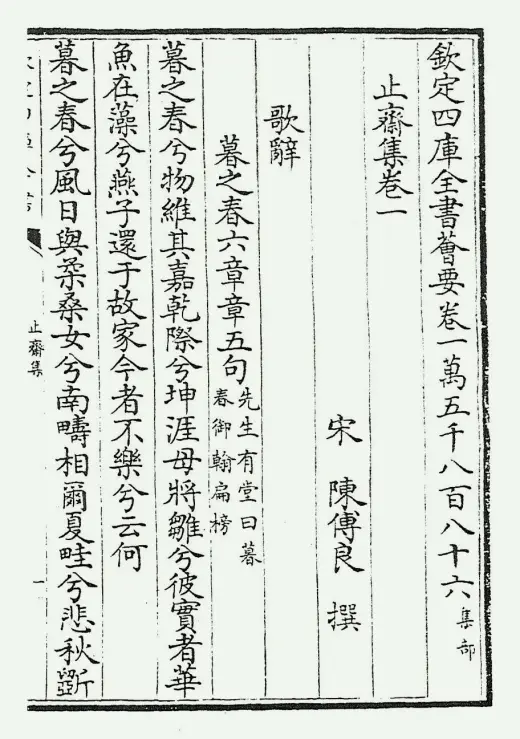 欽定四庫全書薈要卷一萬五千八百八十六 集部
止齋集卷一
宋 陳傅良 撰
歌辭
暮之春六章章五句 先生有堂曰暮
春御翰扁榜
暮之春兮物維其嘉乾際兮坤涯母將雛兮彼實者華
魚在藻兮燕子還于故家今者不樂兮云何
暮之春兮風日與柔桑女兮南疇相爾夏畦兮悲秋斲
止齋集
一